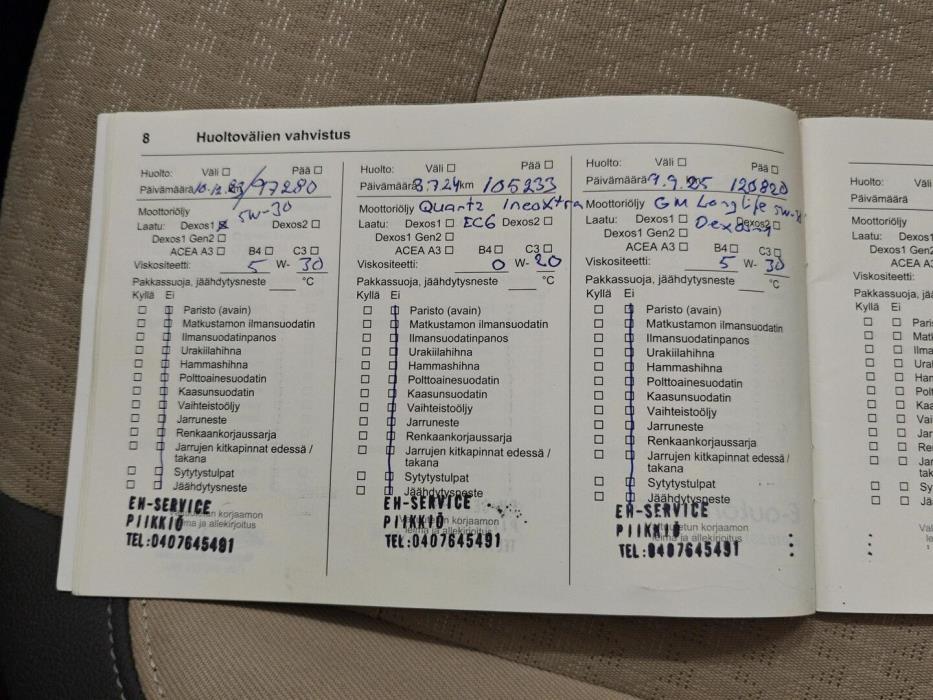 8 Huoltovälien vahvistus
Huolto: Väli ☐ Pää ☐
Päivämäärä 10.12.23/97280
Moottoriöljy 5W-30
Laatu: Dexos1 ☒ Dexos2 ☐
Dexos1 Gen2 ☐
ACEA A3 ☐ B4 ☐ C3 ☐
Viskositeetti: 5 W- 30
Pakkassuoja, jäähdytysneste °C
Kyllä Ei
☐ ☐ Paristo (avain)
☐ ☐ Matkustamon ilmansuodatin
☐ ☐ Ilmansuodatinpanos
☐ ☐ Urakiilahihna
☐ ☐ Hammashihna
☐ ☐ Polttoainesuodatin
☐ ☐ Kaasunsuodatin
☐ ☐ Vaihteistoöljy
☐ ☐ Jarruneste
☐ ☐ Renkaankorjaussarja
☐ ☐ Jarrujen kitkapinnat edessä /
takana
☐ ☐ Sytytystulpat
☐ ☐ Jäähdytysneste
EH-SERVICE
korjaamon
PIIKKIÖ
ja allekirjoitus
TEL:0407645491
Huolto: Väli ☐ Pää ☐
Päivämäärä 8.7.24 km 105233
Moottoriöljy Quartz Ineo Xtra
Laatu: Dexos1 ☐ EC6 Dexos2 ☐
Dexos1 Gen2 ☐
ACEA A3 ☐ B4 ☐ C3 ☐
Viskositeetti: 0 W- 20
Pakkassuoja, jäähdytysneste °C
Kyllä Ei
☐ ☐ Paristo (avain)
☐ ☐ Matkustamon ilmansuodatin
☐ ☐ Ilmansuodatinpanos
☐ ☐ Urakiilahihna
☐ ☐ Hammashihna
☐ ☐ Polttoainesuodatin
☐ ☐ Kaasunsuodatin
☐ ☐ Vaihteistoöljy
☐ ☐ Jarruneste
☐ ☐ Renkaankorjaussarja
☐ ☐ Jarrujen kitkapinnat edessä /
takana
☐ ☐ Sytytystulpat
☐ ☐ Jäähdytysneste
EH-SERVICE
korjaamon
PIIKKIÖ
ja allekirjoitus
TEL:0407645491
Huolto: Väli ☐ Pää ☐
Päivämäärä 9.9.25 120820
Moottoriöljy GM Longlife 5W-30
Laatu: Dexos1 ☐ Dexos2 ☐
Dexos1 Gen2 ☐
ACEA A3 ☐ B4 ☐ C3 ☐
Viskositeetti: 5 W- 30
Pakkassuoja, jäähdytysneste °C
Kyllä Ei
☐ ☐ Paristo (avain)
☐ ☐ Matkustamon ilmansuodatin
☐ ☐ Ilmansuodatinpanos
☐ ☐ Urakiilahihna
☐ ☐ Hammashihna
☐ ☐ Polttoainesuodatin
☐ ☐ Kaasunsuodatin
☐ ☐ Vaihteistoöljy
☐ ☐ Jarruneste
☐ ☐ Renkaankorjaussarja
☐ ☐ Jarrujen kitkapinnat edessä /
takana
☐ ☐ Sytytystulpat
☐ ☐ Jäähdytysneste
EH-SERVICE
korjaamon
PIIKKIÖ
ja allekirjoitus
TEL:0407645491
Huolto: Väli
Päivämäärä
Moottoriöljy
Laatu: Dexos1
Dexos1 Gen
ACEA A3
Viskositeetti:
Pakkassuoja, jä
Kyllä Ei